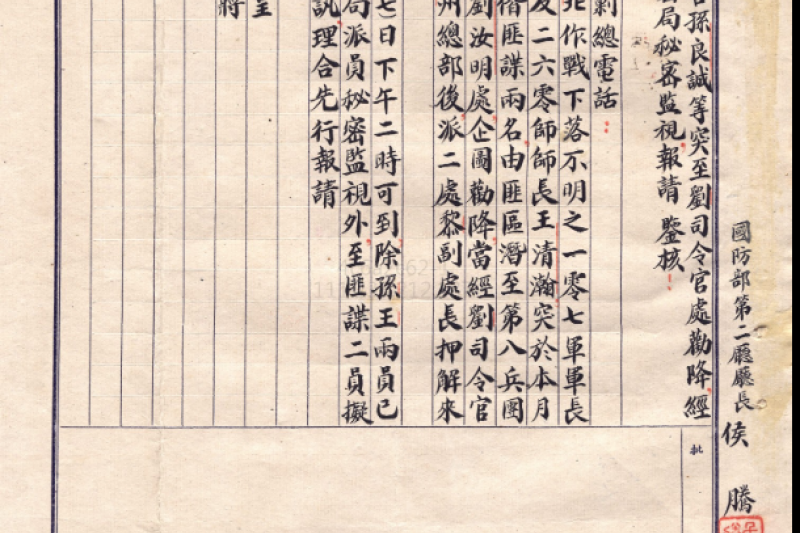 孫良誠等突至劉司令官處勸降經
局秘密監視報請 鑒核
剿總電話
北作戰下落不明之一零七軍軍長
及二六零師師長王清瀚突於本月
偕匪諜兩名由匪區潛至第八兵團
劉汝明處企圖勸降當經劉司令官
州總部後派二處黎副處長押解來
七日下午二時可到除孫王兩員已
局派員秘密監視外至匪諜二員擬
訊理合先行報請
國防部第二廳廳長 侯 騰
批